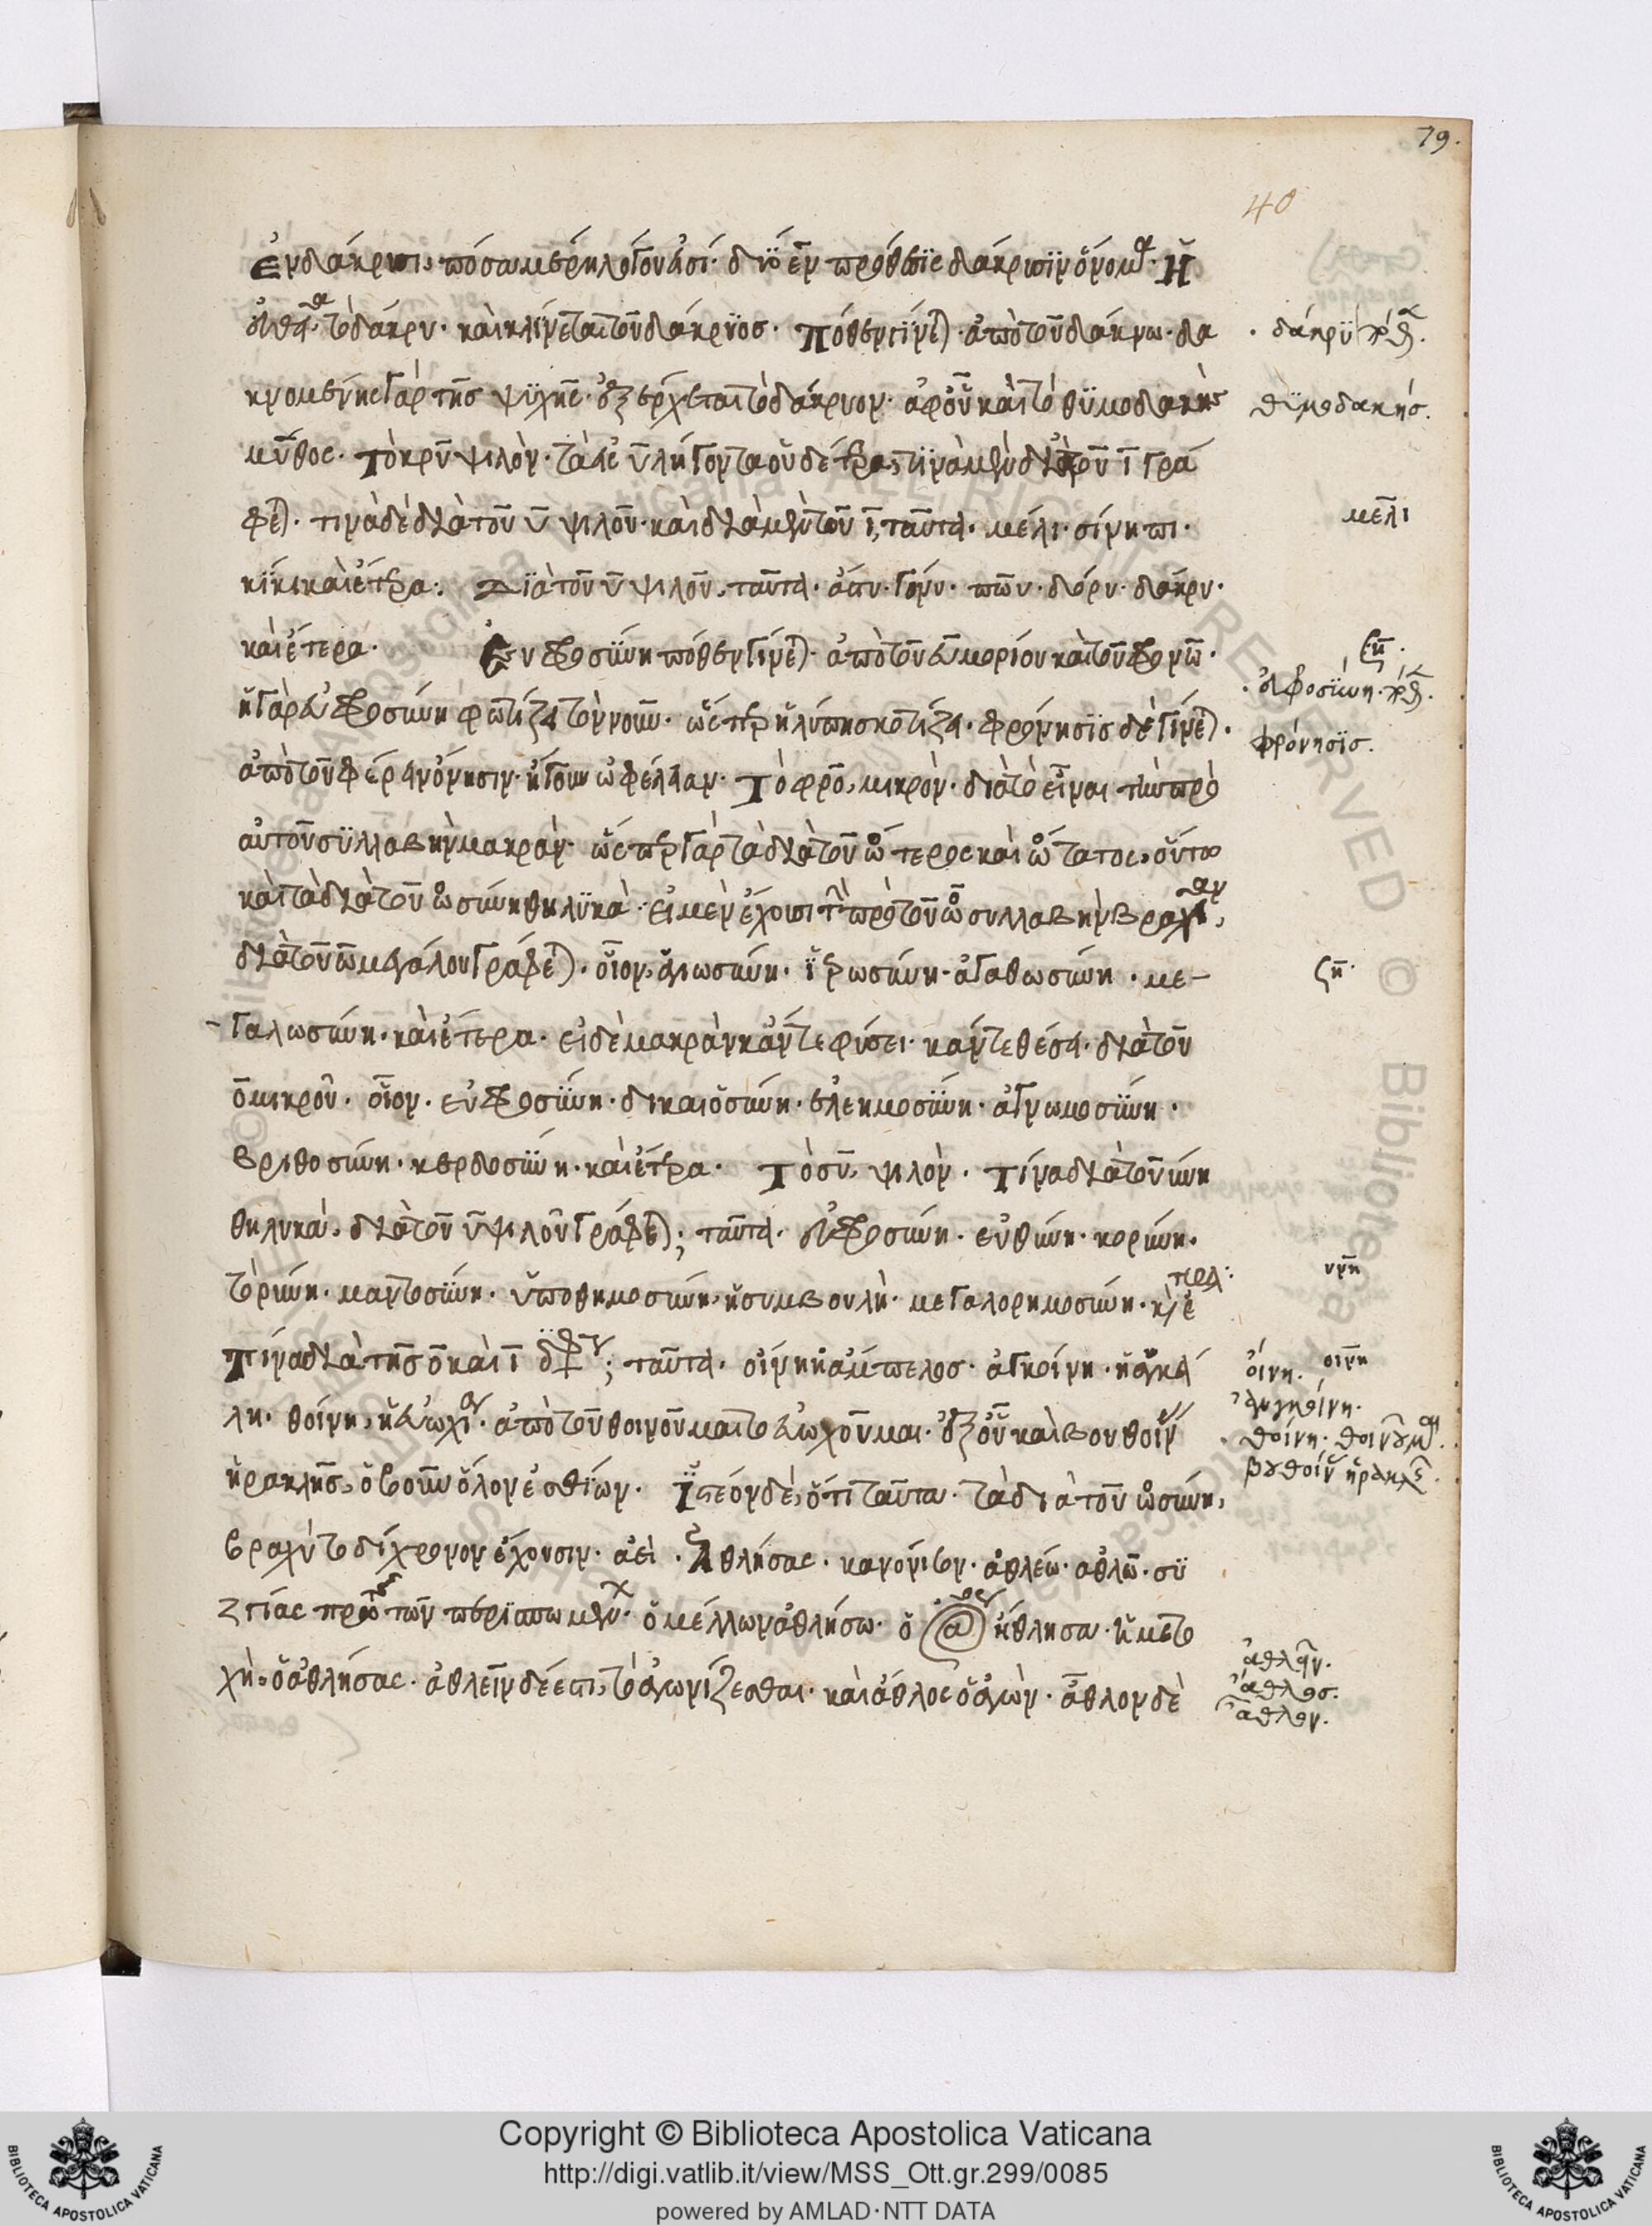 79.
40
ἐν δάκρυσι, πόσα μέρη λόγου εἰσί· δύο· ἐν πρόθεσις δάκρυσιν ὄνομα· ἡ
εὐθεῖα· τὸ δάκρυ· καὶ κλίνεται τοῦ δάκρυος· Πόθεν γίνεται· ἀπὸ τοῦ δάκνω· δα
κνομένης γὰρ τῆς ψυχῆς· ἐξέρχεται τὸ δάκρυον· ἀφ' οὗ καὶ τὸ θυμοδακὴς
μῦθος· Τὸ κρυ ψιλὸν· τὰ εἰς υ λήγοντα οὐδέτερα, τινὰ μὲν διὰ τοῦ ι γρά
φεται· τινὰ δὲ διὰ τοῦ υ ψιλοῦ· καὶ διὰ μὲν τοῦ ι, ταῦτα· μέλι· σίνηπι·
κίκι καὶ ἕτερα· Διὰ τοῦ υ ψιλοῦ, ταῦτα· ἄστυ· γόνυ· πῶυ· δόρυ· δάκρυ·
καὶ ἕτερα· Εὐφροσύνη πόθεν γίνεται· ἀπὸ τοῦ εὖ μορίου καὶ τοῦ φρονῶ·
ἡ γὰρ εὐφροσύνη φωτίζει τὸν νοῦν· ὥσπερ ἡ λύπη σκοτίζει· φρόνησις δὲ γίνεται·
ἀπὸ τοῦ φέρειν ὄνησιν· ἤγουν ὠφέλειαν· Τὸ φρο, μικρὸν· διὰ τὸ εἶναι τὴν πρὸ
αὐτοῦ συλλαβὴν μακράν· ὥσπερ γὰρ τὰ διὰ τοῦ ότερος καὶ ότατος, οὕτω
καὶ τὰ διὰ τοῦ οσύνη θηλυκὰ· εἰ μὲν ἔχουσι τὴν πρὸ τοῦ ω συλλαβὴν βραχεῖαν,
διὰ τοῦ ω μεγάλου γράφεται· οἷον, ἁγιωσύνη· ἱερωσύνη· ἀγαθωσύνη· με-
-γαλωσύνη· καὶ ἕτερα· εἰ δὲ μακρὰν κἄν τε φύσει· κἄν τε θέσει· διὰ τοῦ
ο μικροῦ· οἷον· εὐφροσύνη· δικαιοσύνη· ἐλεημοσύνη· ἀγνωμοσύνη·
βριθοσύνη· κερδοσύνη· καὶ ἕτερα· Τὸ συ, ψιλὸν· Τίνα διὰ τοῦ ύνη
θηλυκὰ, διὰ τοῦ υ ψιλοῦ γράφεται; ταῦτα· εὐφροσύνη· εὐθύνη· κορύνη·
τορύνη· μαντοσύνη· ὑποθημοσύνη, ἡ συμβουλὴ· μεγαλορημοσύνη· καὶ ἕτερα·
Τίνα διὰ τῆς ο καὶ ι διφθόγγου; ταῦτα· οἴνη ἡ ἄμπελος· ἀγκοίνη· ἡ ἀγκά
λη· θοίνη, ἡ εὐωχία· ἀπὸ τοῦ θοινοῦμαι τὸ εὐωχοῦμαι· ἐξ οὗ καὶ βουθοίνης
ἡρακλῆς, ὁ βοῦν ὅλον ἐσθίων· Ἰστέον δὲ, ὅτι ταῦτα· τὰ διὰ τοῦ οσύνη,
βραχὺ τὸ δίχρονον ἔχουσιν· ἀεὶ· Ἀθλήσας· κανόνισον· ἀθλέω· ἀθλῶ· συ
ζυγίας πρώτης τῶν περισπωμένων· ὁ μέλλων ἀθλήσω· ὁ ἀόριστος ἤθλησα· ἡ μετο
χὴ, ὁ ἀθλήσας· ἀθλεῖν δέ ἐστι, τὸ ἀγωνίζεσθαι· καὶ ἆθλος ὁ ἀγὼν· ἆθλον δὲ
θυμοδακής.
μέλι
φρόνησις.
υνη
οἴνη. οινη
ἀγκοίνη.
θοίνη· θοινοῦμαι.
βουθοίνης ἡρακλῆς.
ἀθλεῖν.
ἆθλος.
ἆθλον.
Copyright © Biblioteca Apostolica Vaticana
http://digi.vatlib.it/view/MSS_Ott.gr.299/0085
powered by AMLAD·NTT DATA
BIBLIOTECA APOSTOLICA VATICANA
BIBLIOTECA APOSTOLICA VATICANA